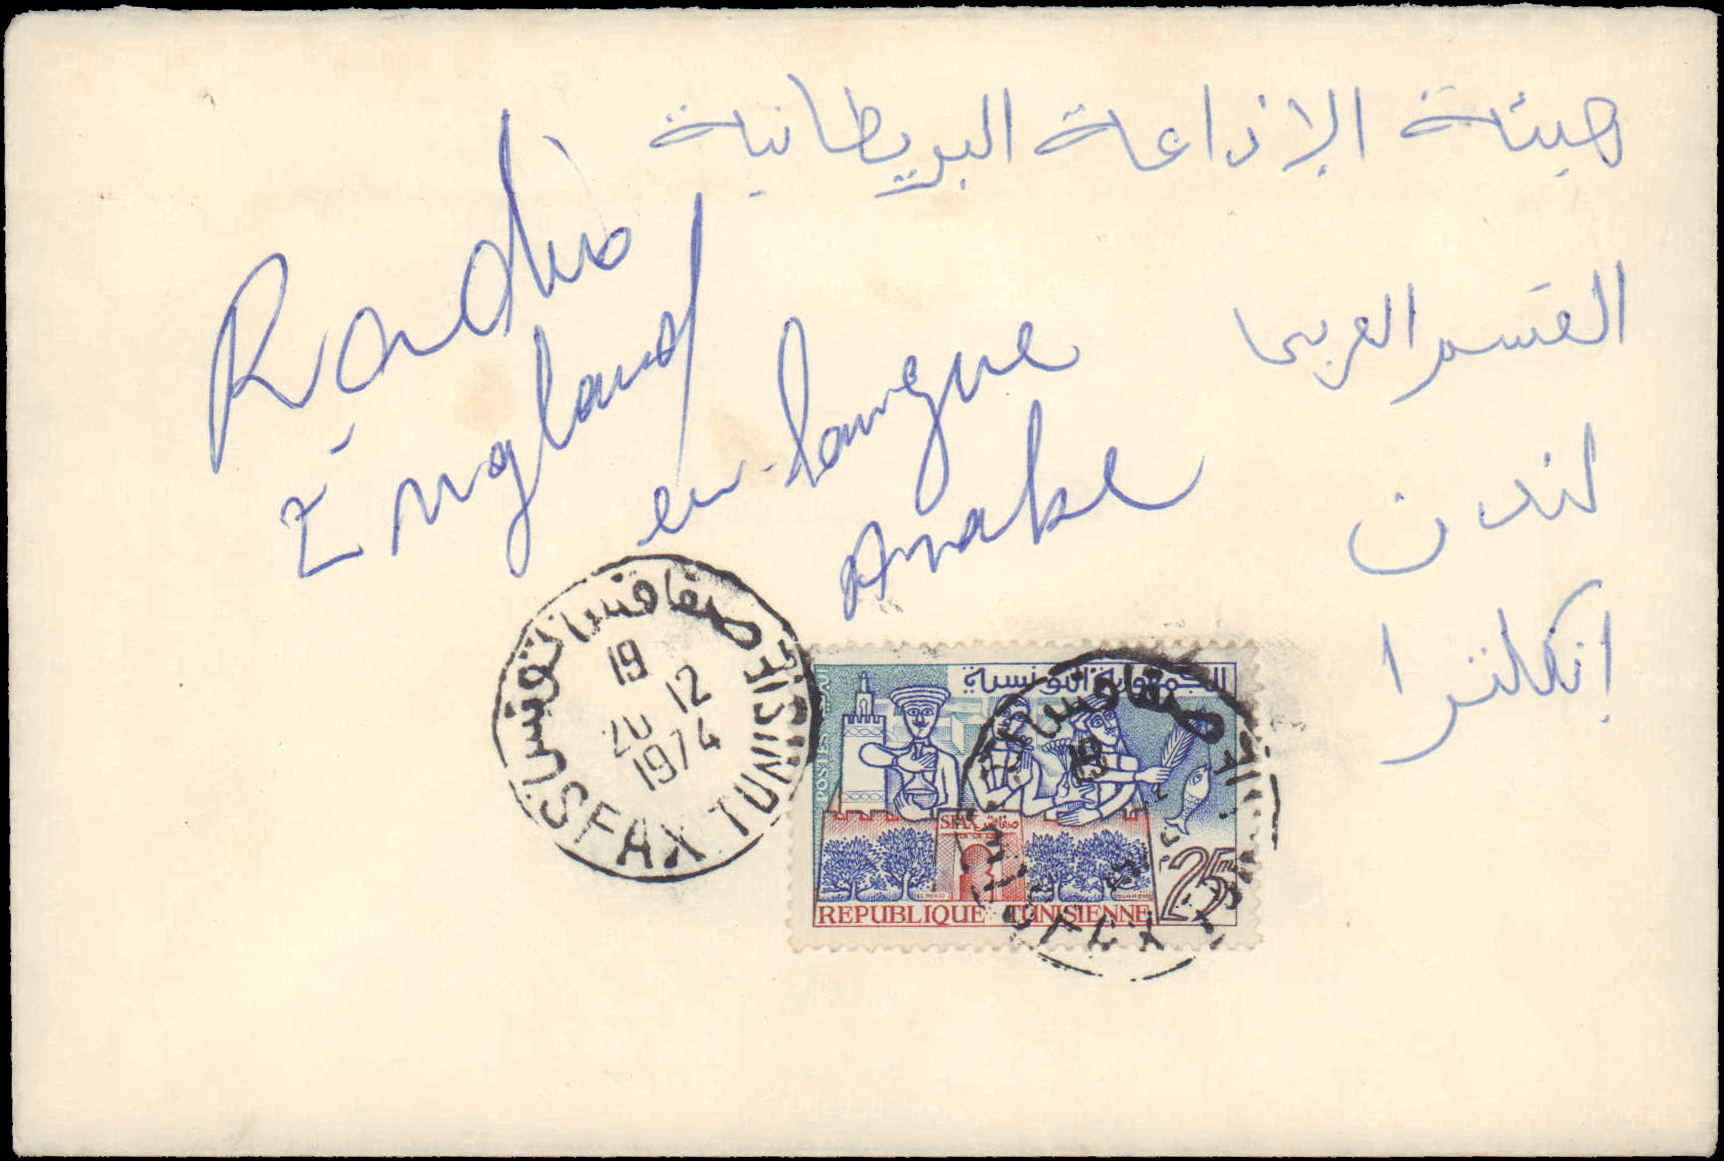 هيئة الإذاعة البريطانية
القسم العربي
لندن
انكلترا
Radio
England
en langue
Arabe
صفاقس التونسية
19
12
20
1974
SFAX TUNISIE
الجمهورية التونسية
POSTES
صفاقس
25
REPUBLIQUE TUNISIENNE
صفاقس
19